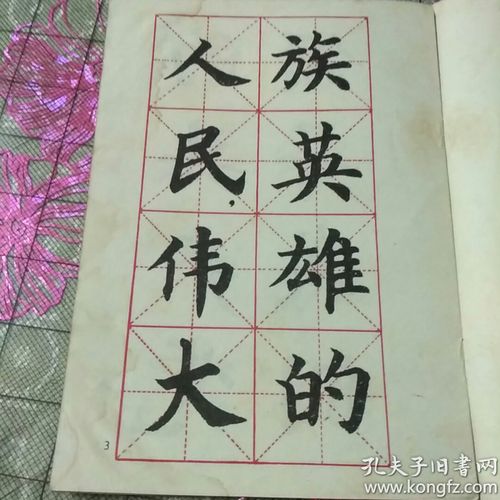 族英雄的
人民，伟大
3
孔夫子旧书网
www.kongfz.com